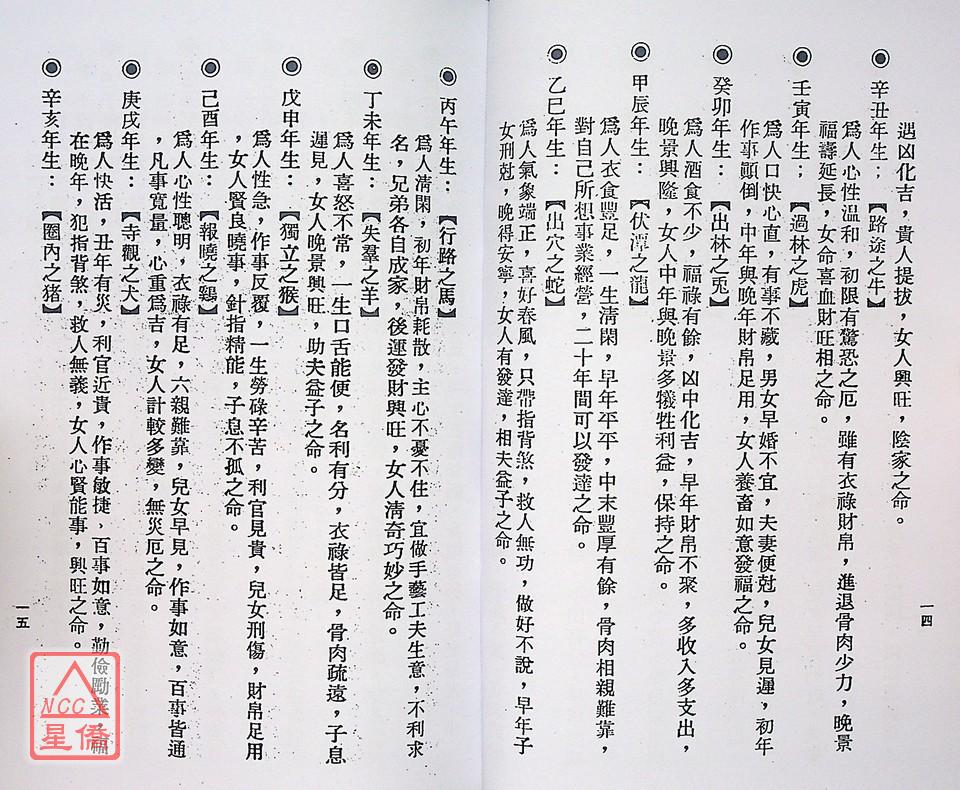 遇凶化吉，貴人提拔，女人興旺，陰家之命。
辛丑年生；【路途之牛】
爲人心性温和，初限有驚恐之厄，雖有衣祿財帛，進退骨肉少力，晚景
福壽延長，女命喜血財旺相之命。
壬寅年生；【過林之虎】
爲人口快心直，有事不藏，男女早婚不宜，夫妻便尅，兒女見遲，初年
作事顚倒，中年與晚年財帛足用，女人養畜如意發福之命。
癸卯年生：【出林之兎】
爲人酒食不少，福祿有餘，凶中化吉，早年財帛不聚，多收入多支出，
晚景興隆，女人中年與晚景多犠牲利益，保持之命。
甲辰年生：【伏潭之龍】
爲人衣食豐足，一生清閑，早年平平，中末豐厚有餘，骨肉相親難靠，
對自己所想事業經營，二十年間可以發達之命。
乙巳年生：【出穴之蛇】
爲人氣象端正，喜好春風，只帶指背煞，救人無功，做好不說，早年子
女刑尅，晚得安寧，女人有發達，相夫益子之命。
一四
丙午年生：【行路之馬】
爲人淸閑，初年財帛耗散，主心不憂不住，宜做手藝工夫生意，不利求
名，兄弟各自成家，後運發財興旺，女人淸奇巧妙之命。
丁未年生：【失羣之羊】
爲人喜怒不常，一生口舌能便，名利有分，衣祿皆足，骨肉疏遠，子息
遲見，女人晚景興旺，助夫益子之命。
戊申年生：【獨立之猴】
爲人性急，作事反覆，一生勞碌辛苦，利官見貴，兒女刑傷，財帛足用
，女人賢良曉事，針指精能，子息不孤之命。
己酉年生：【報曉之鷄】
爲人心性聰明，衣祿有足，六親難靠，兒女早見，作事如意，百事皆通
，凡事寬量，心重爲吉，女人計較多變，無災厄之命。
庚戌年生：【寺觀之犬】
爲人快活，丑年有災，利官近貴，作事敏捷，百事如意，勤儉勵業，福
在晚年，犯指背煞，救人無義，女人心賢能事，興旺之命。
辛亥年生：【圈內之猪】
一五
NCC
星僑